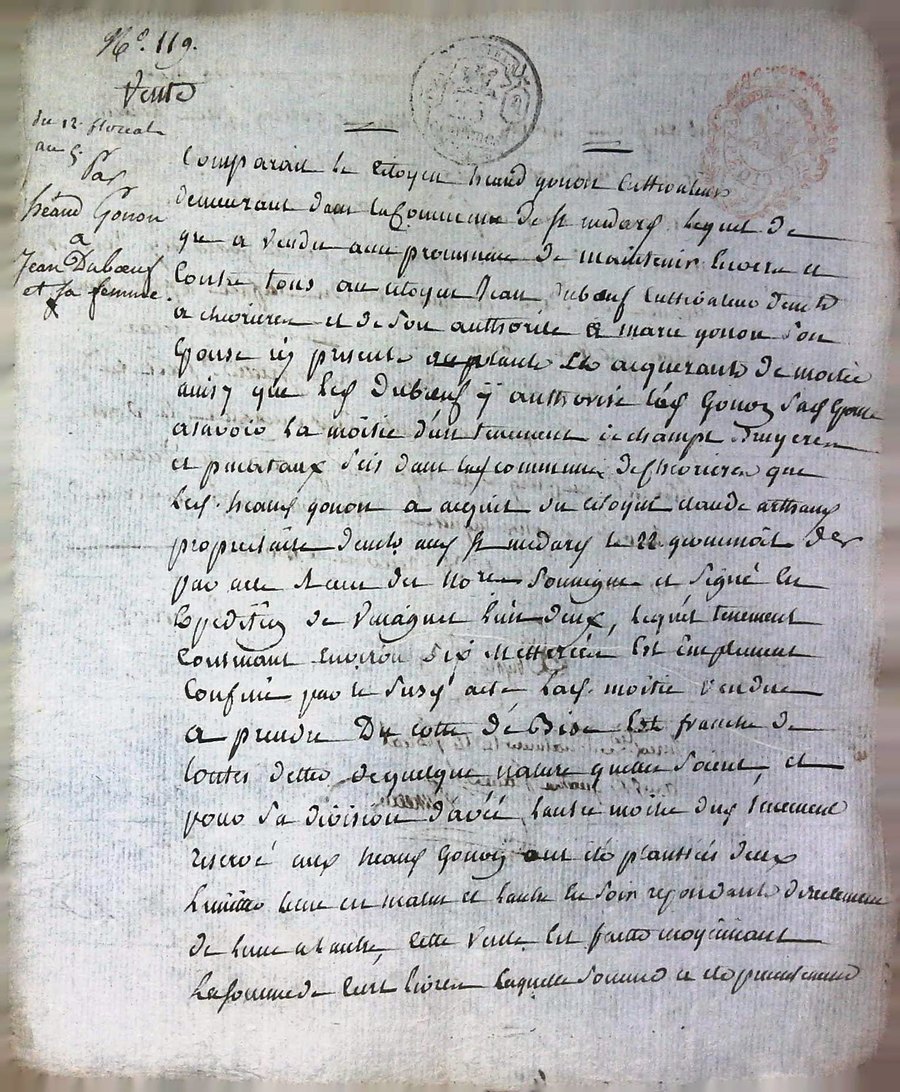 N.º 119.
Vente
du 12. floreal
an 5.
Par
heaud Gonon
a
Jean Dubœuf
et sa femme.
Comparait le Citoyen heaud gonon Cultivateur
demeurant dans la Commune de St medard lequel de
gre a vendu avec promesse de maintenir envers et
Contre tous au citoyen Jean Dubœuf Cultivateur demt
a chevrieres et de son authorité a marie gonon son
Epouse icy presente acquerants de moitie
ainsy que led Dubœuf y authorise lad Gonon sad Epouse
asavoir la moitie d'un tenement de champt Bruyeres
et paturaux scis dans lad commune de chevrieres que
led. heaud gonon a acquit du citoyen claude
propriétaire demt aud St medard le 22
par acte Reçu du Nore Soussigne et signé en
Expedition de l'an deux, lequel tenement
Contenant Environ six Metterées Est Emplement
Confiné par le susd acte lad. moitie vendue
a prendre Du cotté de Bise Est franche de
toutes dettes de quelque nature quelles soient, et
pour sa division d'avec l'autre moitie dud tenement
reservé aud heaud Gonon ont été plantées deux
limites lune en matin et lautre en soir repondants directement
de lune a lautre, cette vente Est faitte moyennant
la somme de Cent livres laquelle somme a été